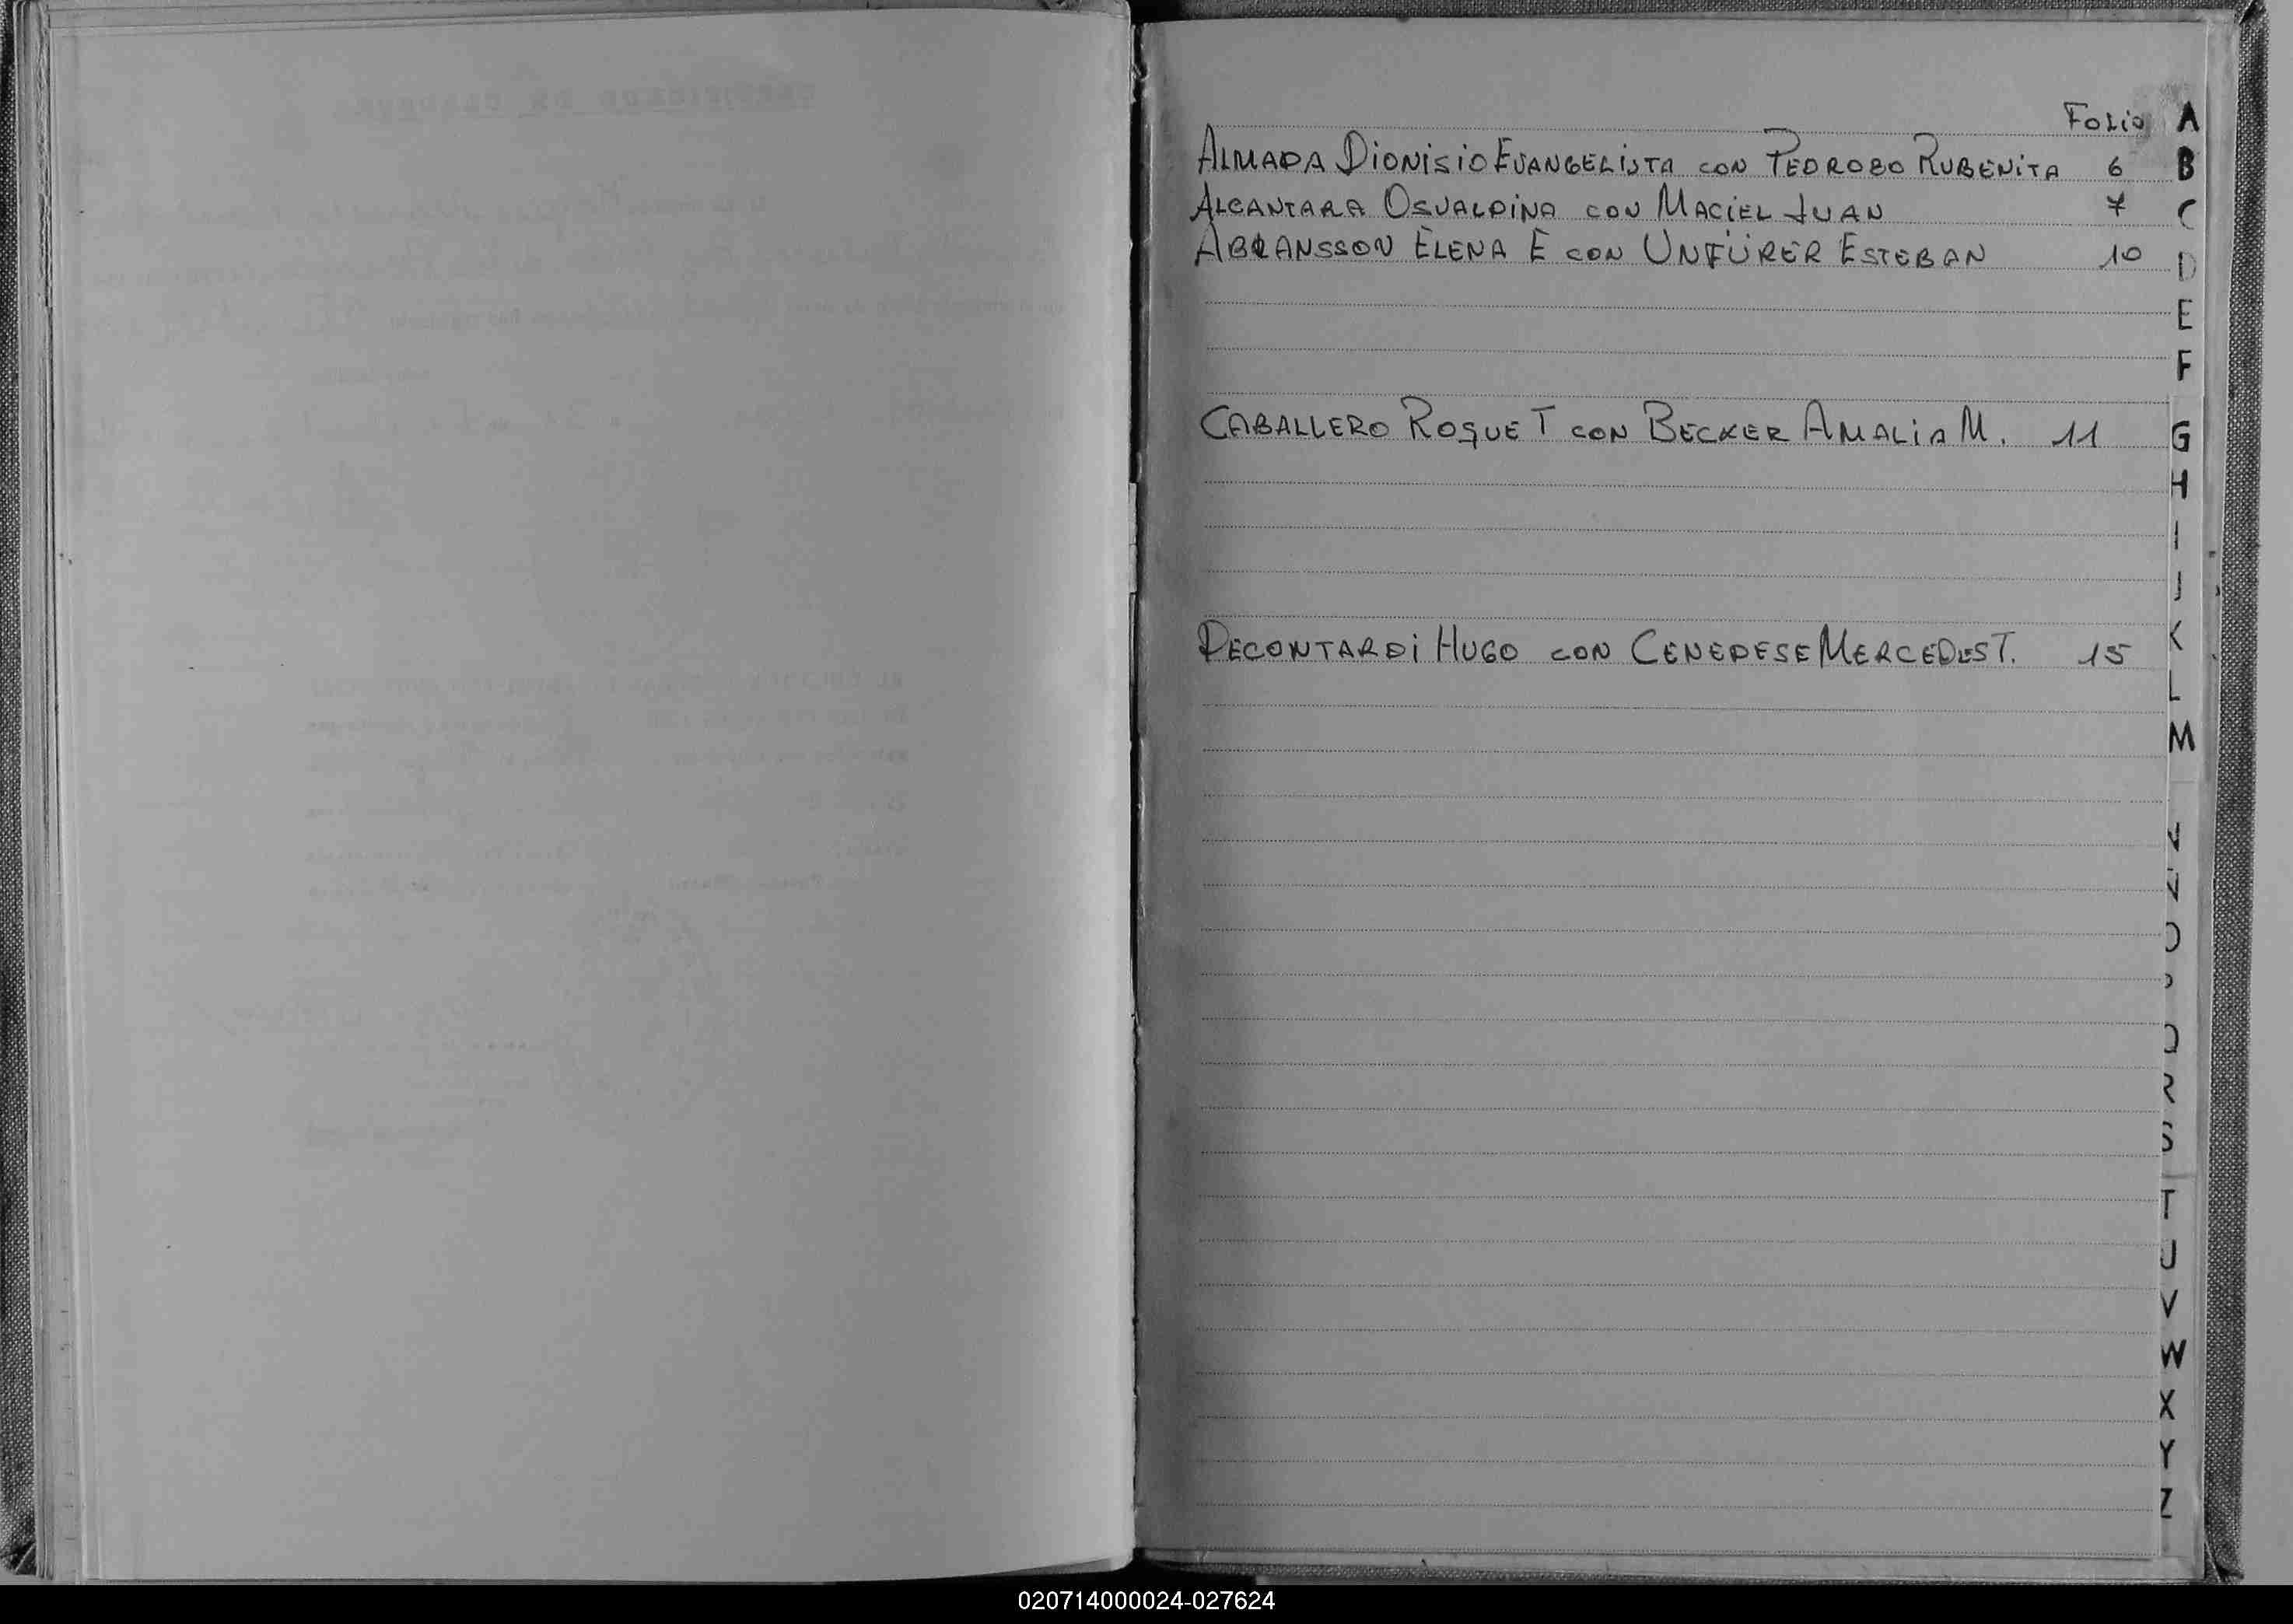 Folio
ALMADA DIONISIO EVANGELISTA CON PEDROZO RUBENITA 6
ALCANTARA OSVALDINA CON MACIEL JUAN 7
ABRANSSON ELENA E CON UNFÜRER ESTEBAN 10
CABALLERO ROQUE T CON BECKER AMALIA M. 11
DECONTARDI HUGO CON CENEDESE MERCEDES T. 15
A
B
C
D
E
F
G
H
I
J
K
L
M
N
Ñ
O
P
Q
R
S
T
U
V
W
X
Y
Z
020714000024-027624